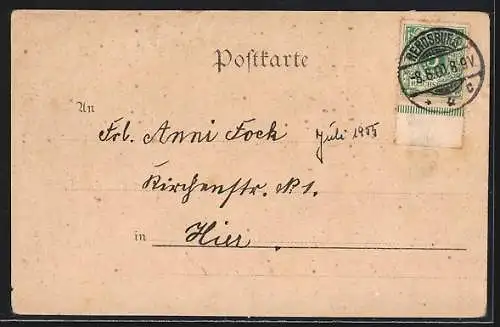 Postkarte
RENDSBURG
-8.6.00.8-9V
* u c
An
Frl. Anni Fock
Juli 1955
Kirchenstr. N 1.
in Hier